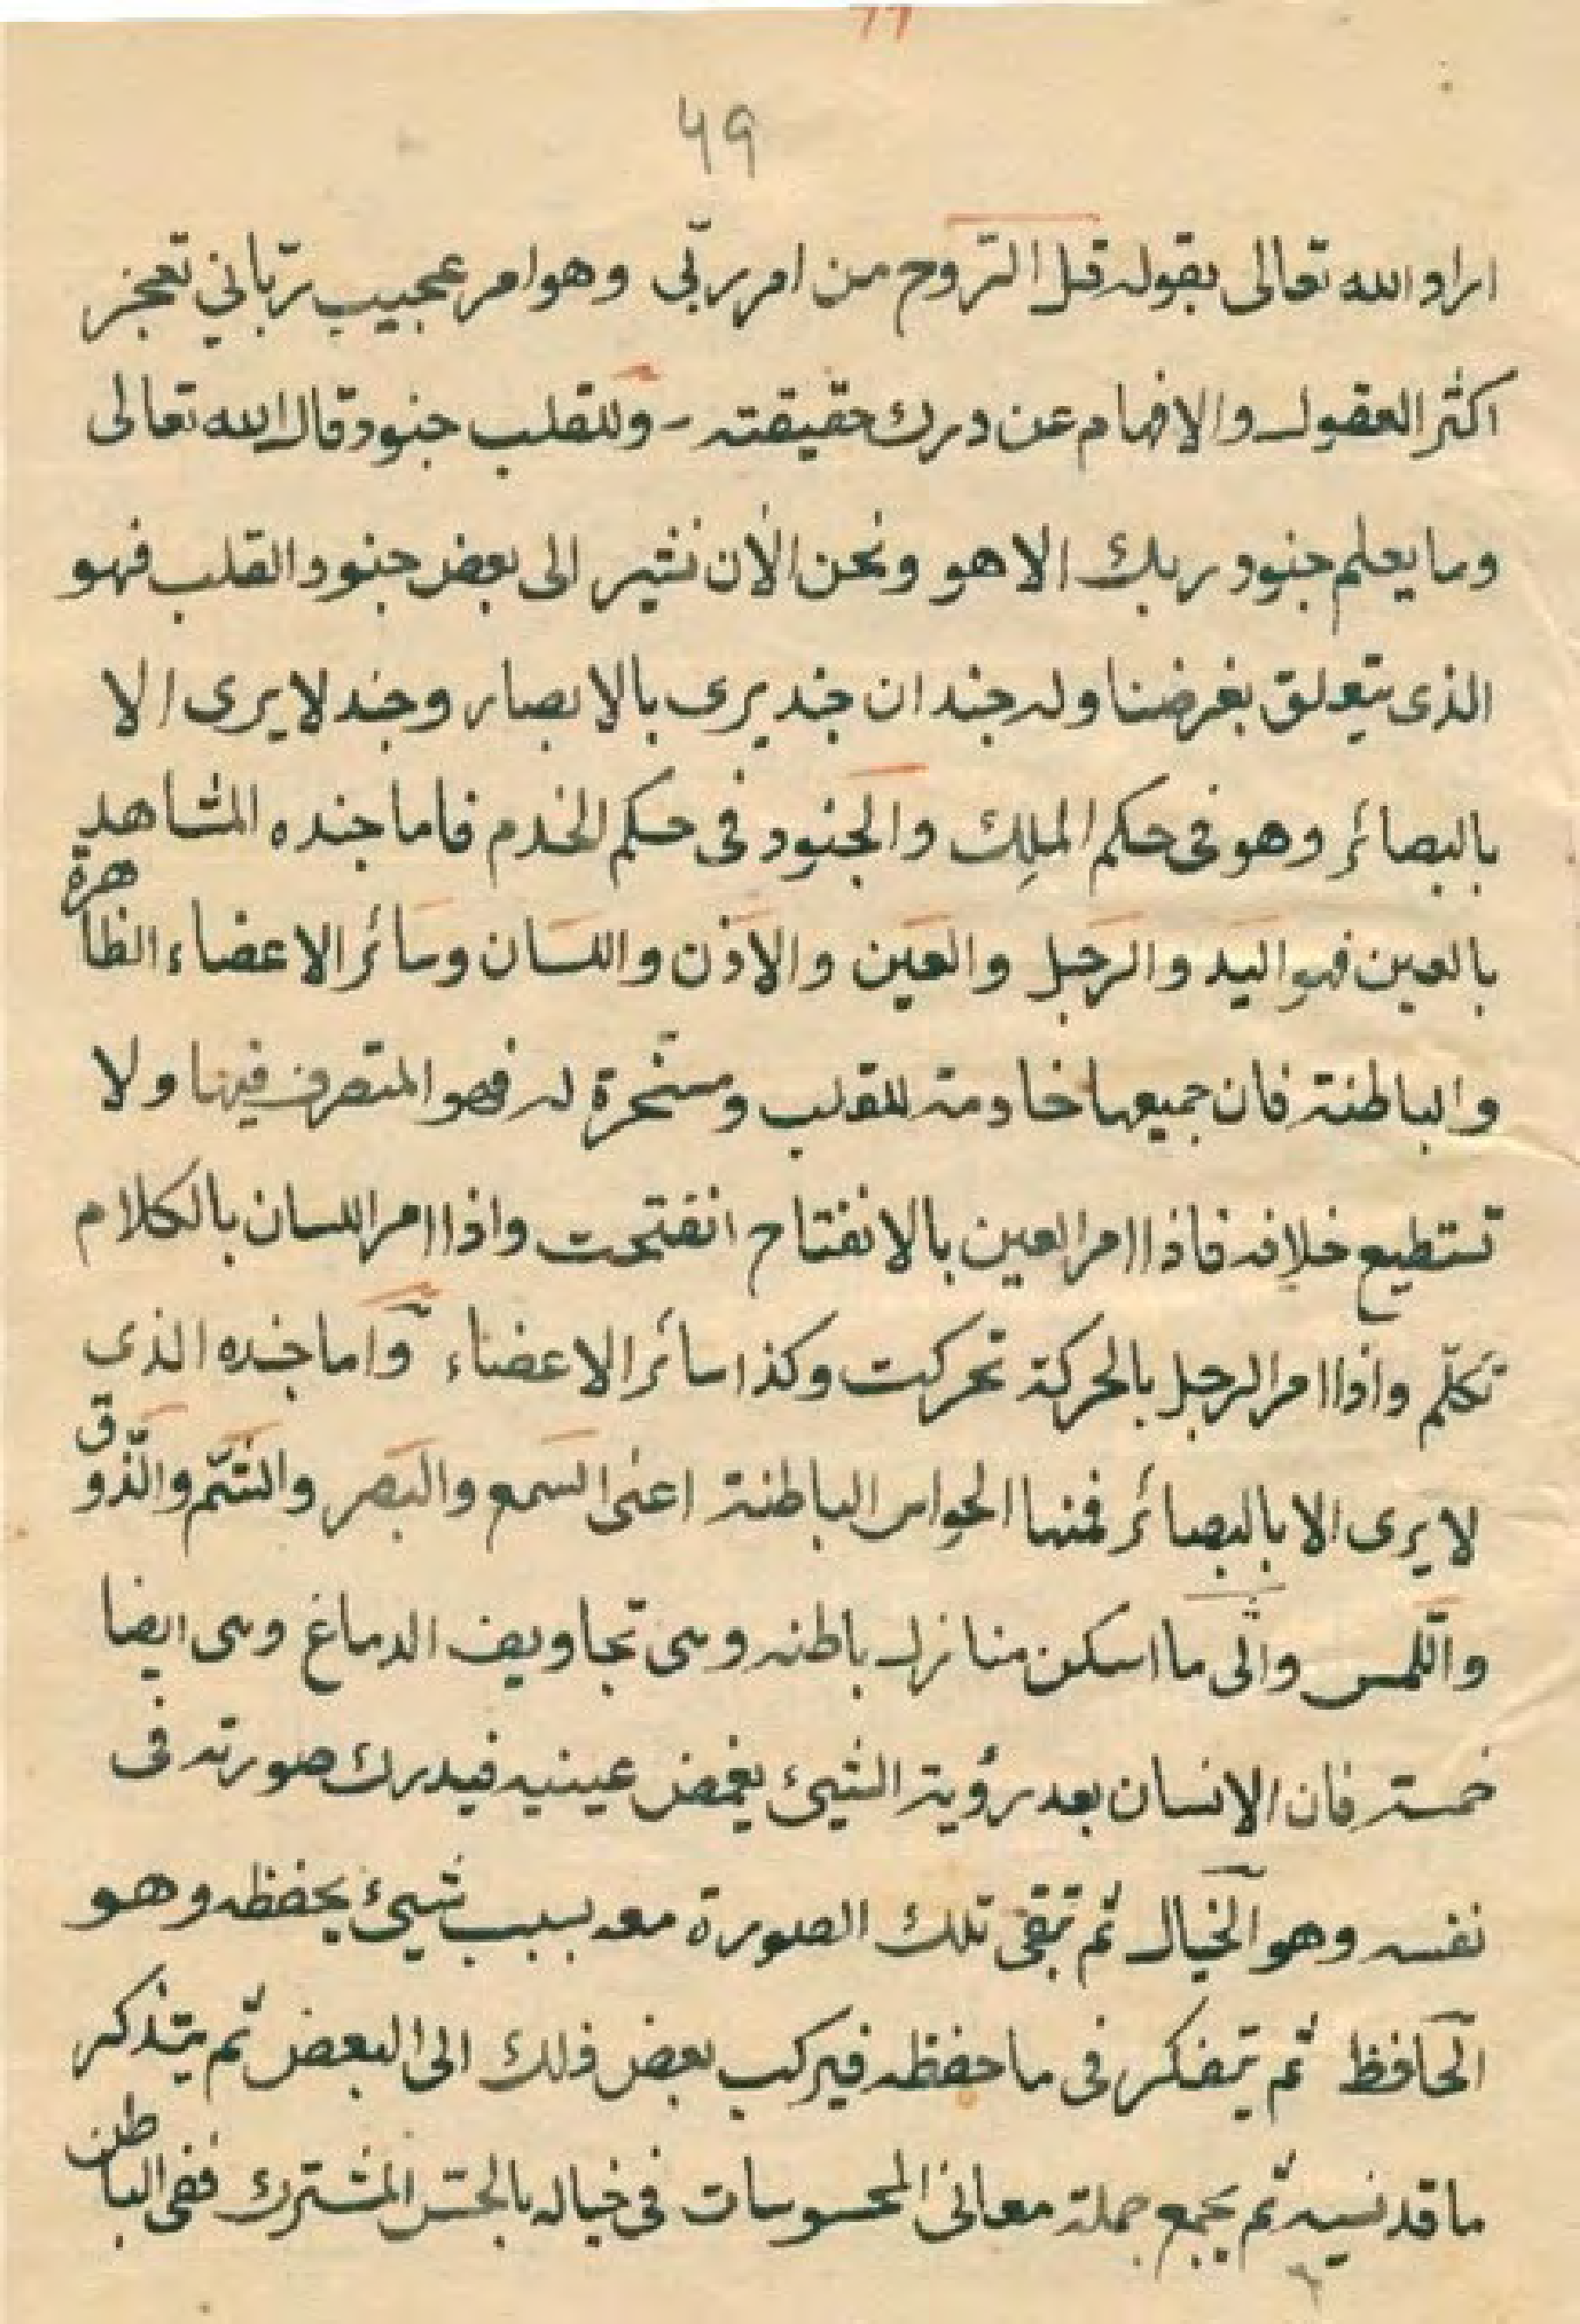 ٦٩
اراد الله تعالى بقوله قل الرّوح من امر ربّي وهو امر عجيب ربّاني تعجز
اكثر العقول والافهام عن درك حقيقته - وللقلب جنود قال الله تعالى
وما يعلم جنود ربك الا هو ونحن الأن نشير الى بعض جنود القلب فهو
الذى يتعلق بغرضنا وله جندان جند يرى بالابصار وجند لا يرى الا
بالبصائر وهو فى حكم الملِك والجنود فى حكم الخدم فاما جنده المشاهد
بالعين فهو اليد والرجل والعين والاذن واللسان وسائر الاعضاء الظاهرة
والباطنة فان جميعها خادمة للقلب ومسخّرة له فهو المتصرف فيها ولا
تستطيع خلافه فاذا امر العين بالانفتاح انفتحت واذا امر اللسان بالكلام
تكلّم واذا امر الرجل بالحركة تحركت وكذا سائر الاعضاء وامّا جنده الذى
لا يرى الا بالبصائر فمنها الحواس الباطنة اعنى السمع والبصر والشّم والذّوق
واللّمس والّتى ما اسكن منازل باطنه وهى تجاويف الدماغ وهى ايضا
خمسة فان الانسان بعد رؤية الشيئ يغمض عينيه فيدرك صورته فى
نفسه وهو الخيال ثم تبقى تلك الصورة معه بسبب شيئ يحفظه وهو
الحافظ ثم يتفكر فى ما حفظه فيركب بعض ذلك الى البعض ثم يتذكر
ما قد نسيه ثم يجمع جملة معانى المحسوسات فى خياله بالحسّ المشترك ففى الباطن